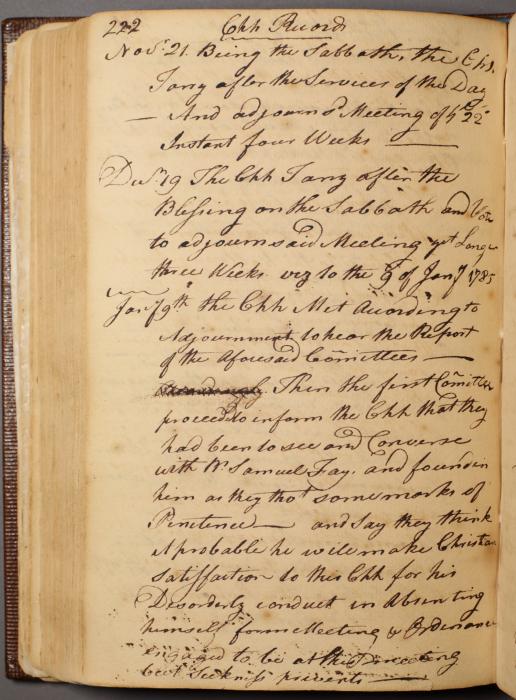 222 Chh Records
Nov.r 21. Being the Sabbath, the Chh.
Tarry after the Services of the Day
— And adjourn.d Meeting of ye 22d
Instant four Weeks —
Decr. 19 The Chh Tarry after the
Blessing on the Sabbath and Vote
to adjourn said Meeting yet Longer
three Weeks viz to the 9 of Jany 1785
Jany 9th the Chh Met According to
Adjournment to hear the Report
of the Aforesaid Comittees —
Then the first Comittee
proceed to inform the Chh that they
had been to see and Converse
with Mr. Samuel Fay, and found in
him as they thot some marks of
Penitence — and Say they think
it probable he will make Christian
Satisffaction to this Chh for his
Desorderly conduct in Absenting
himself from Meeting & Ordinances
engaged to be at this meeting
but Sickniss prevents —